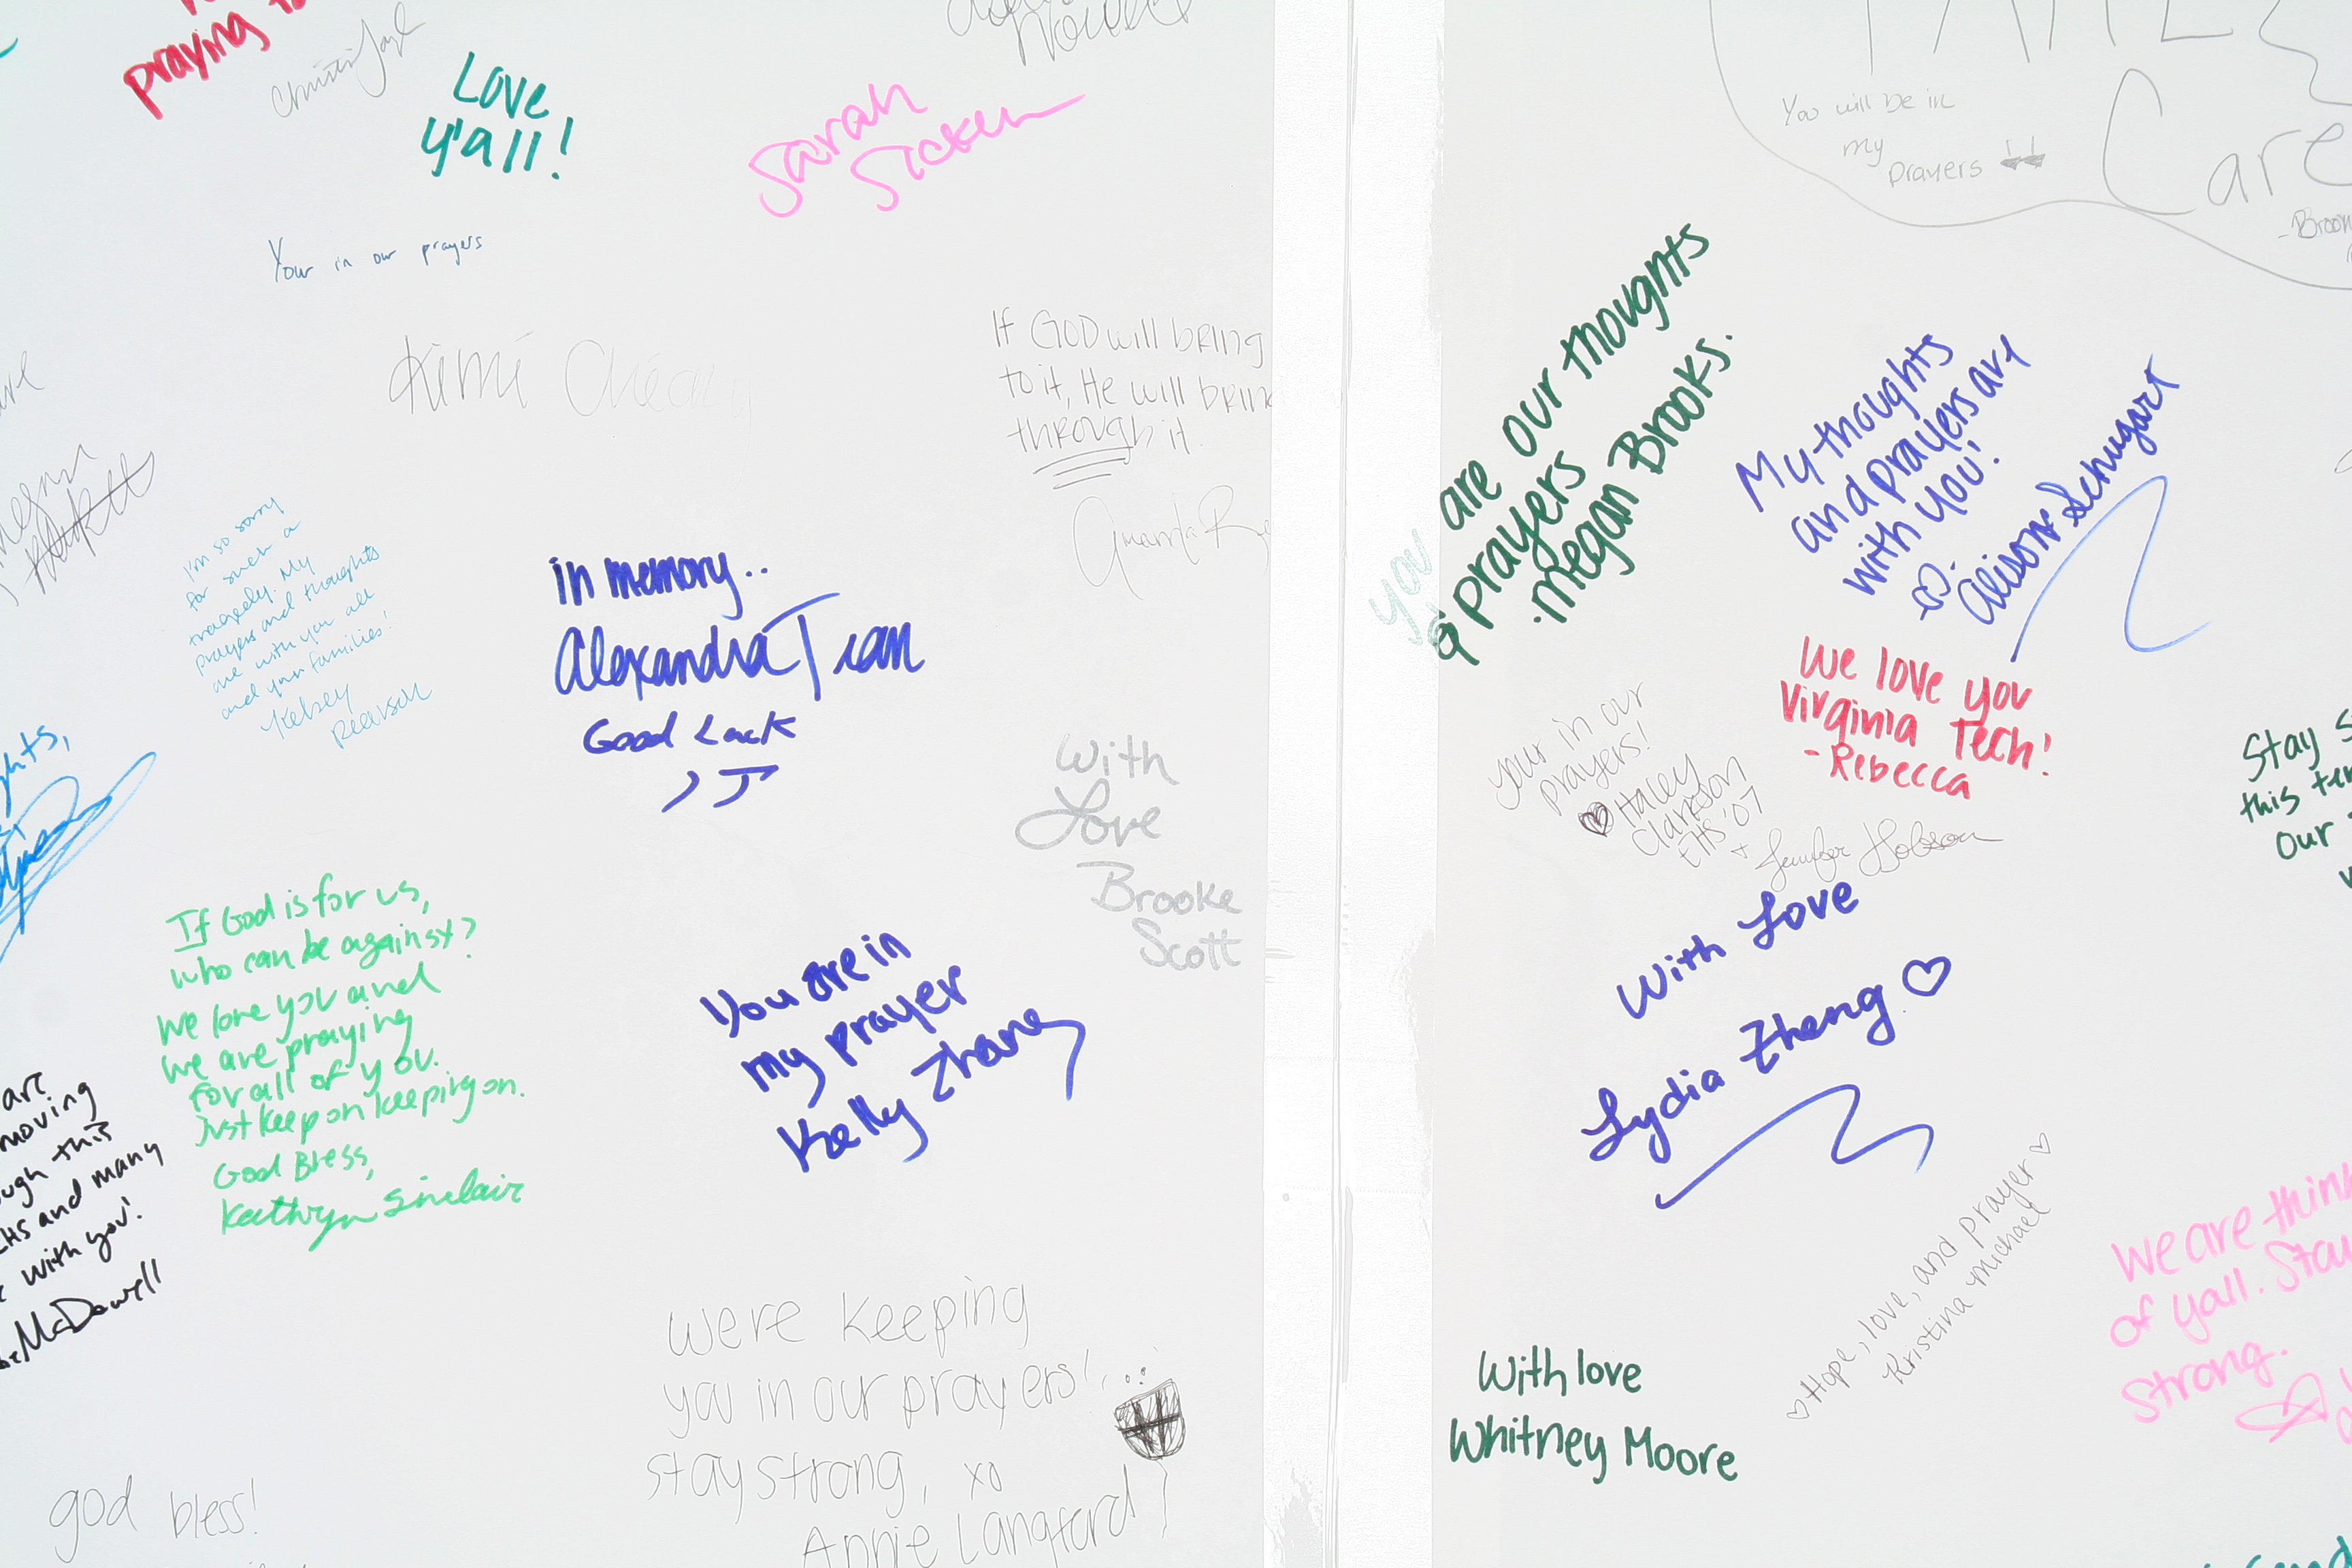 praying
Love
y'all!
Sarah
You will be in
my
prayers
Care
Your in our prayers
Kimi
If GOD will bring
to it, He will bring
through it.
Amanda
you are our thoughts
& prayers
Megan Brooks.
My thoughts
and prayers are
with you!
Alison Schugart
I'm so sorry
for such a
tragedy. My
prayers and thoughts
are with you all
and your families!
Kelsey
Pearson
in memory..
Alexandra Tran
Good Luck
We love you
Virginia Tech!
-Rebecca
your in our
prayers!
Haley
Clarkson
EHS '07
+ Jennifer Hobson
With
Love
Brooke
Scott
Stay
this
Our
If God is for us,
who can be against?
We love you and
we are praying
for all of you.
Just keep on keeping on.
God Bless,
Kathryn Sinclair
You are in
my prayer
Kelly Zhang
With Love
Lydia Zheng
are
moving
this
and many
with you!
McDowell
Hope, love, and prayer
Kristina Michael
We are
of yall.
Strong.
were keeping
you in our prayers!
stay strong, xo
Annie Langford
With love
Whitney Moore
god bless!